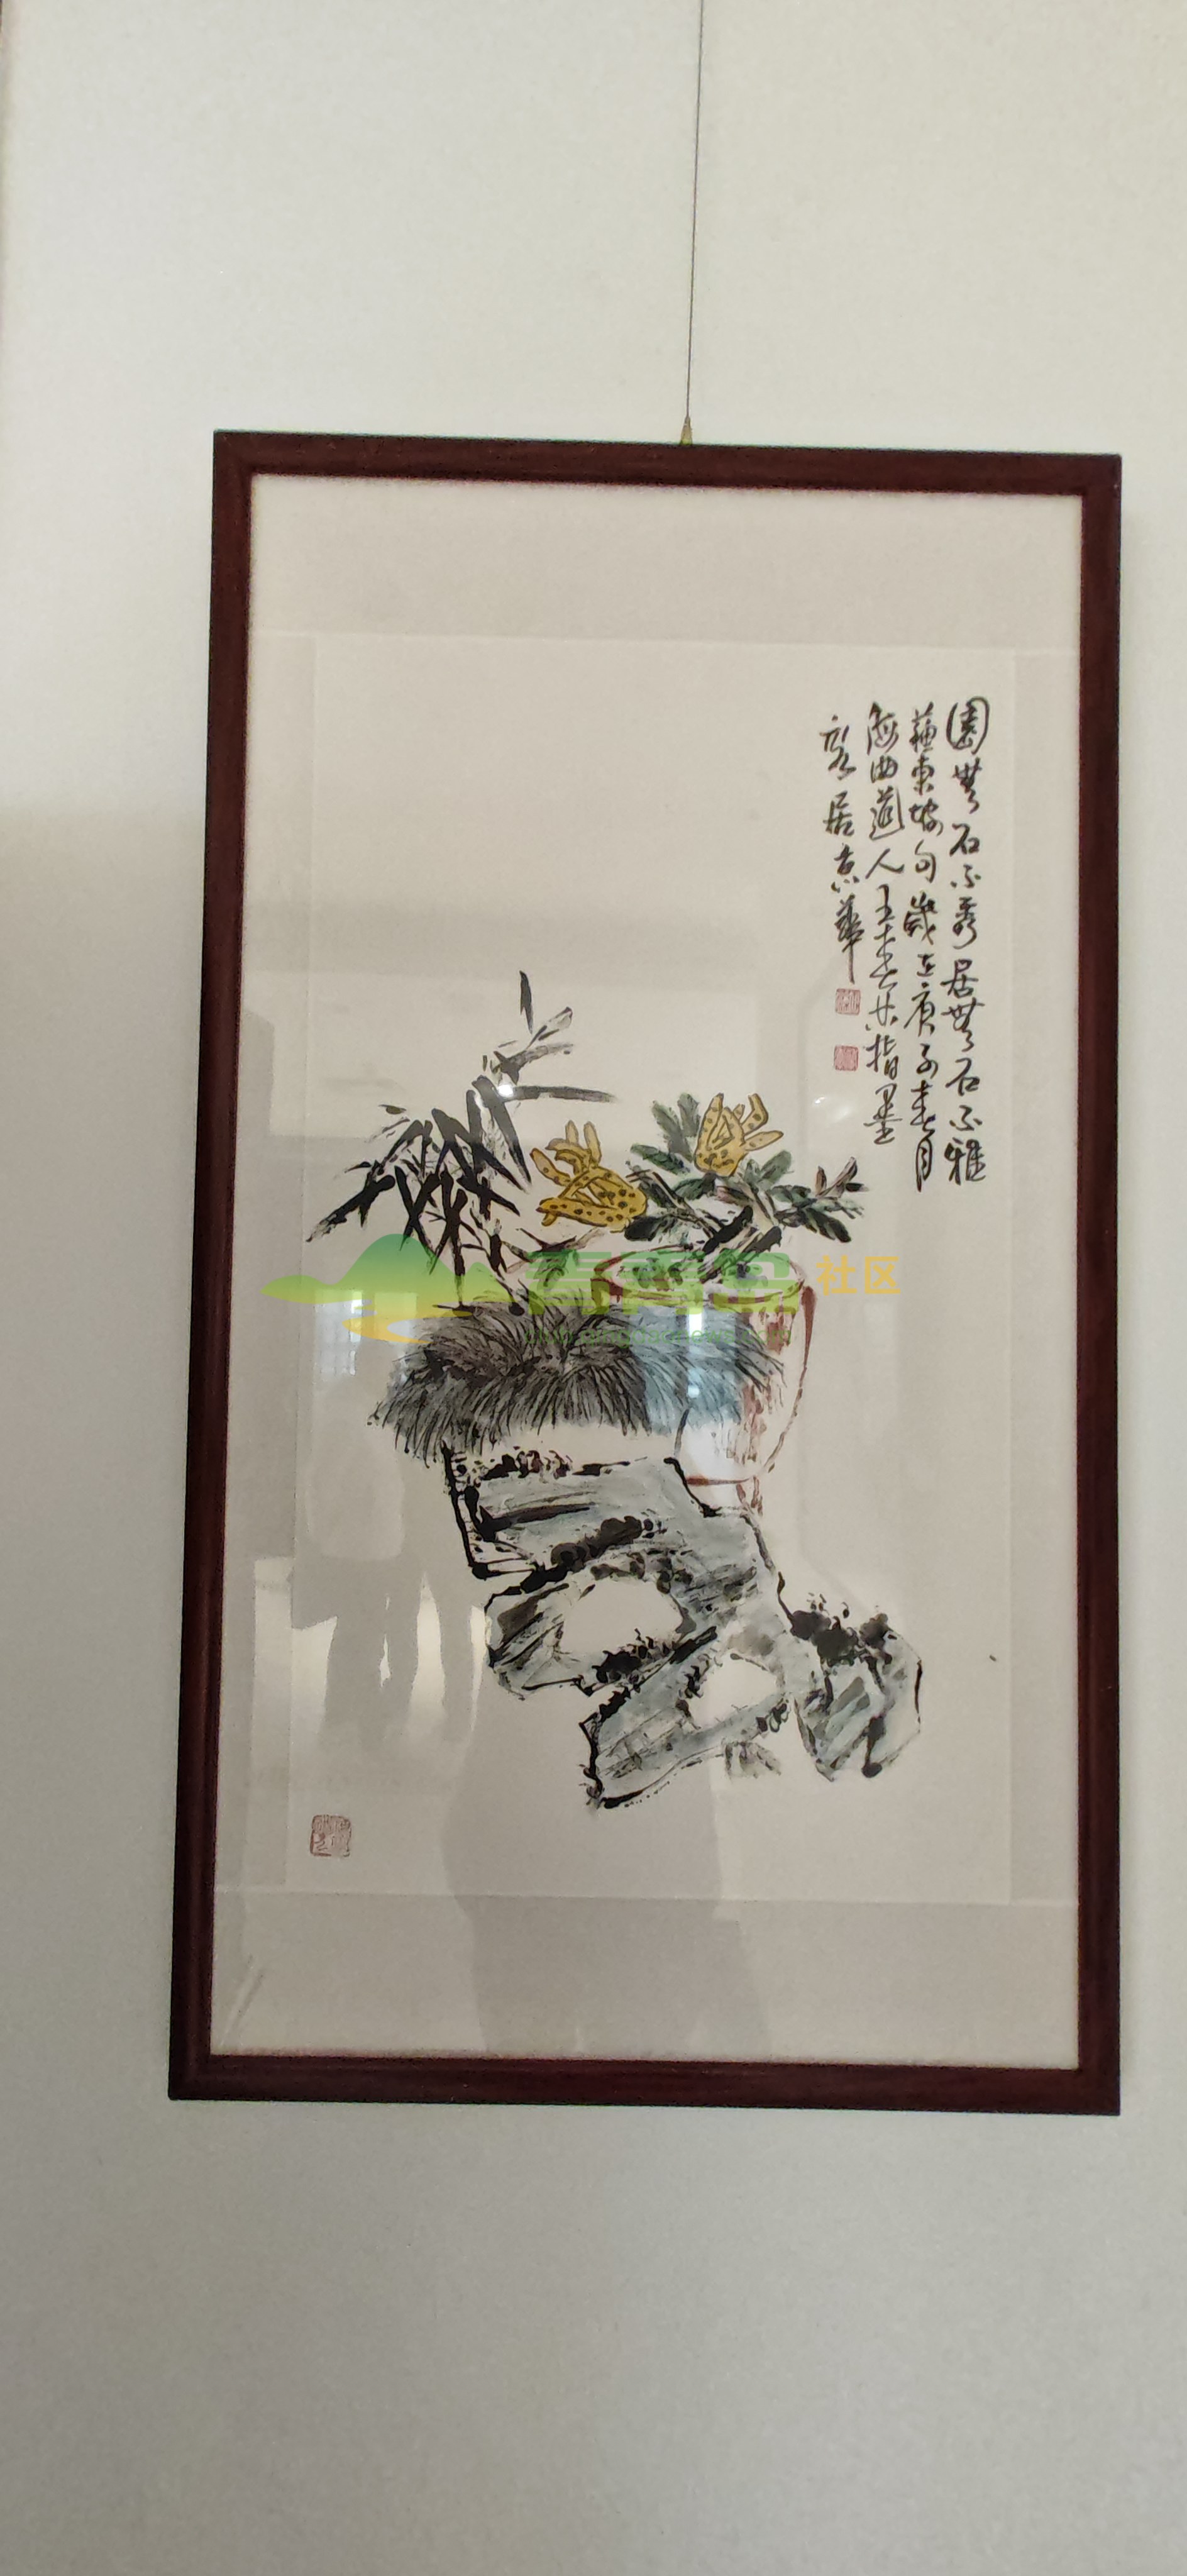 園無石不秀居無石不雅
蘇東坡句歲在庚子春月
海曲道人王 指墨
客居京華
青青岛社区